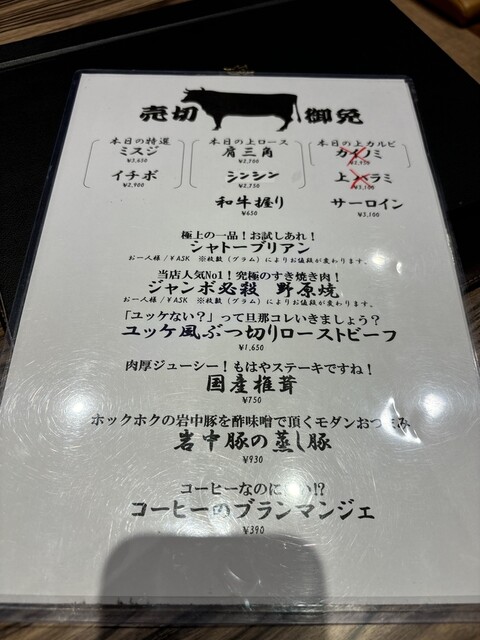 売切 御免
本日の特選
ミスジ
¥3,650
イチボ
¥2,900
本日の上ロース
肩三角
¥2,700
シンシン
¥2,750
本日の上カルビ
カイノミ
上バラミ
¥3,100
サーロイン
¥3,100
和牛握り
¥650
極上の一品！お試しあれ！
シャトーブリアン
お一人様/¥ASK ※枚数（グラム）によりお値段が変わります。
当店人気No1！究極のすき焼き肉！
ジャンボ必殺 野原焼
お一人様/¥ASK ※枚数（グラム）によりお値段が変わります。
「ユッケない？」って旦那コレいきましょう？
ユッケ風ぶつ切りローストビーフ
¥1,650
肉厚ジューシー！もはやステーキですね！
国産椎茸
¥750
ホックホクの岩中豚を酢味噌で頂くモダンおつまみ
岩中豚の蒸し豚
¥930
コーヒーなのに !?
コーヒーのブランマンジェ
¥390